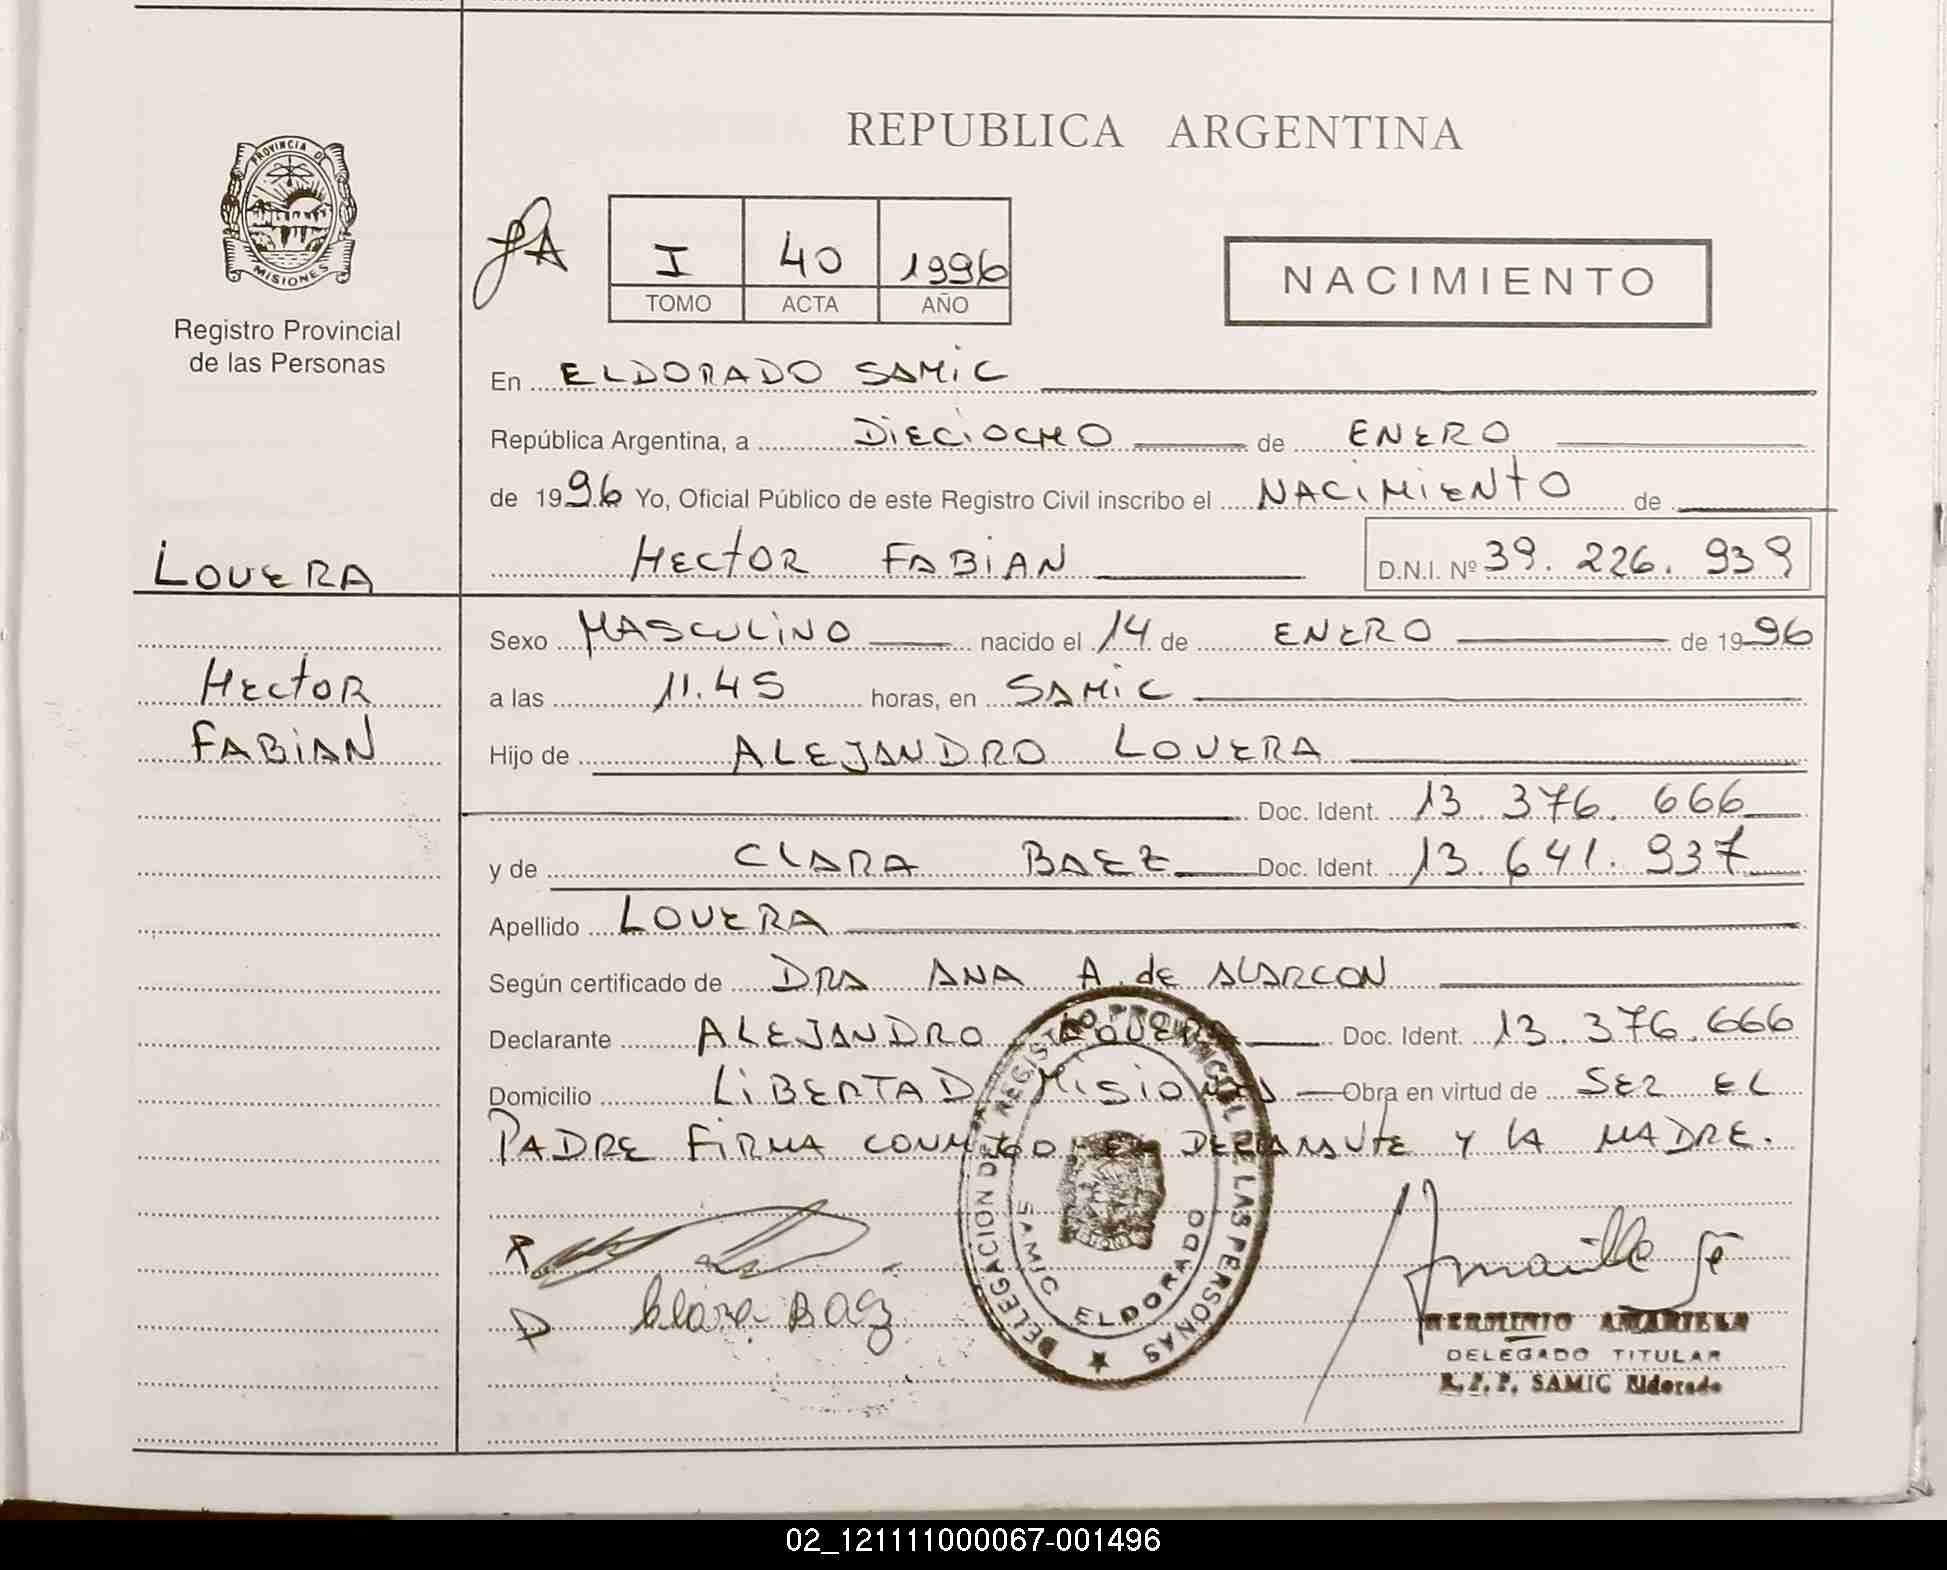 REPUBLICA ARGENTINA
PROVINCIA D
MISIONES
Registro Provincial
de las Personas
I 40 1996
TOMO ACTA AÑO
NACIMIENTO
En ELDORADO SAMIC
República Argentina, a DIECIOCHO de ENERO
de 1996 Yo, Oficial Público de este Registro Civil inscribo el NACIMIENTO de
LOVERA
HECTOR FABIAN D.N.I. Nº 39.226.939
Sexo MASCULINO nacido el 14 de ENERO de 1996
HECTOR
a las 11.45 horas, en SAMIC
FABIAN
Hijo de ALEJANDRO LOVERA
Doc. Ident. 13.376.666
y de CLARA BAEZ Doc. Ident. 13.641.937
Apellido LOVERA
Según certificado de DRA ANA A. de ALARCON
Declarante ALEJANDRO LOVERA Doc. Ident. 13.376.666
Domicilio LIBERTAD MISIONES Obra en virtud de SER EL
PADRE FIRMA CONMIGO EL DECLARANTE Y LA MADRE.
DELEGACION DEL REGISTRO PROVINCIAL DE LAS PERSONAS
SAMIC ELDORADO
Clara Baez
HERMINIO AMARILLA
DELEGADO TITULAR
R.P.P. SAMIC Eldorado
02_121111000067-001496